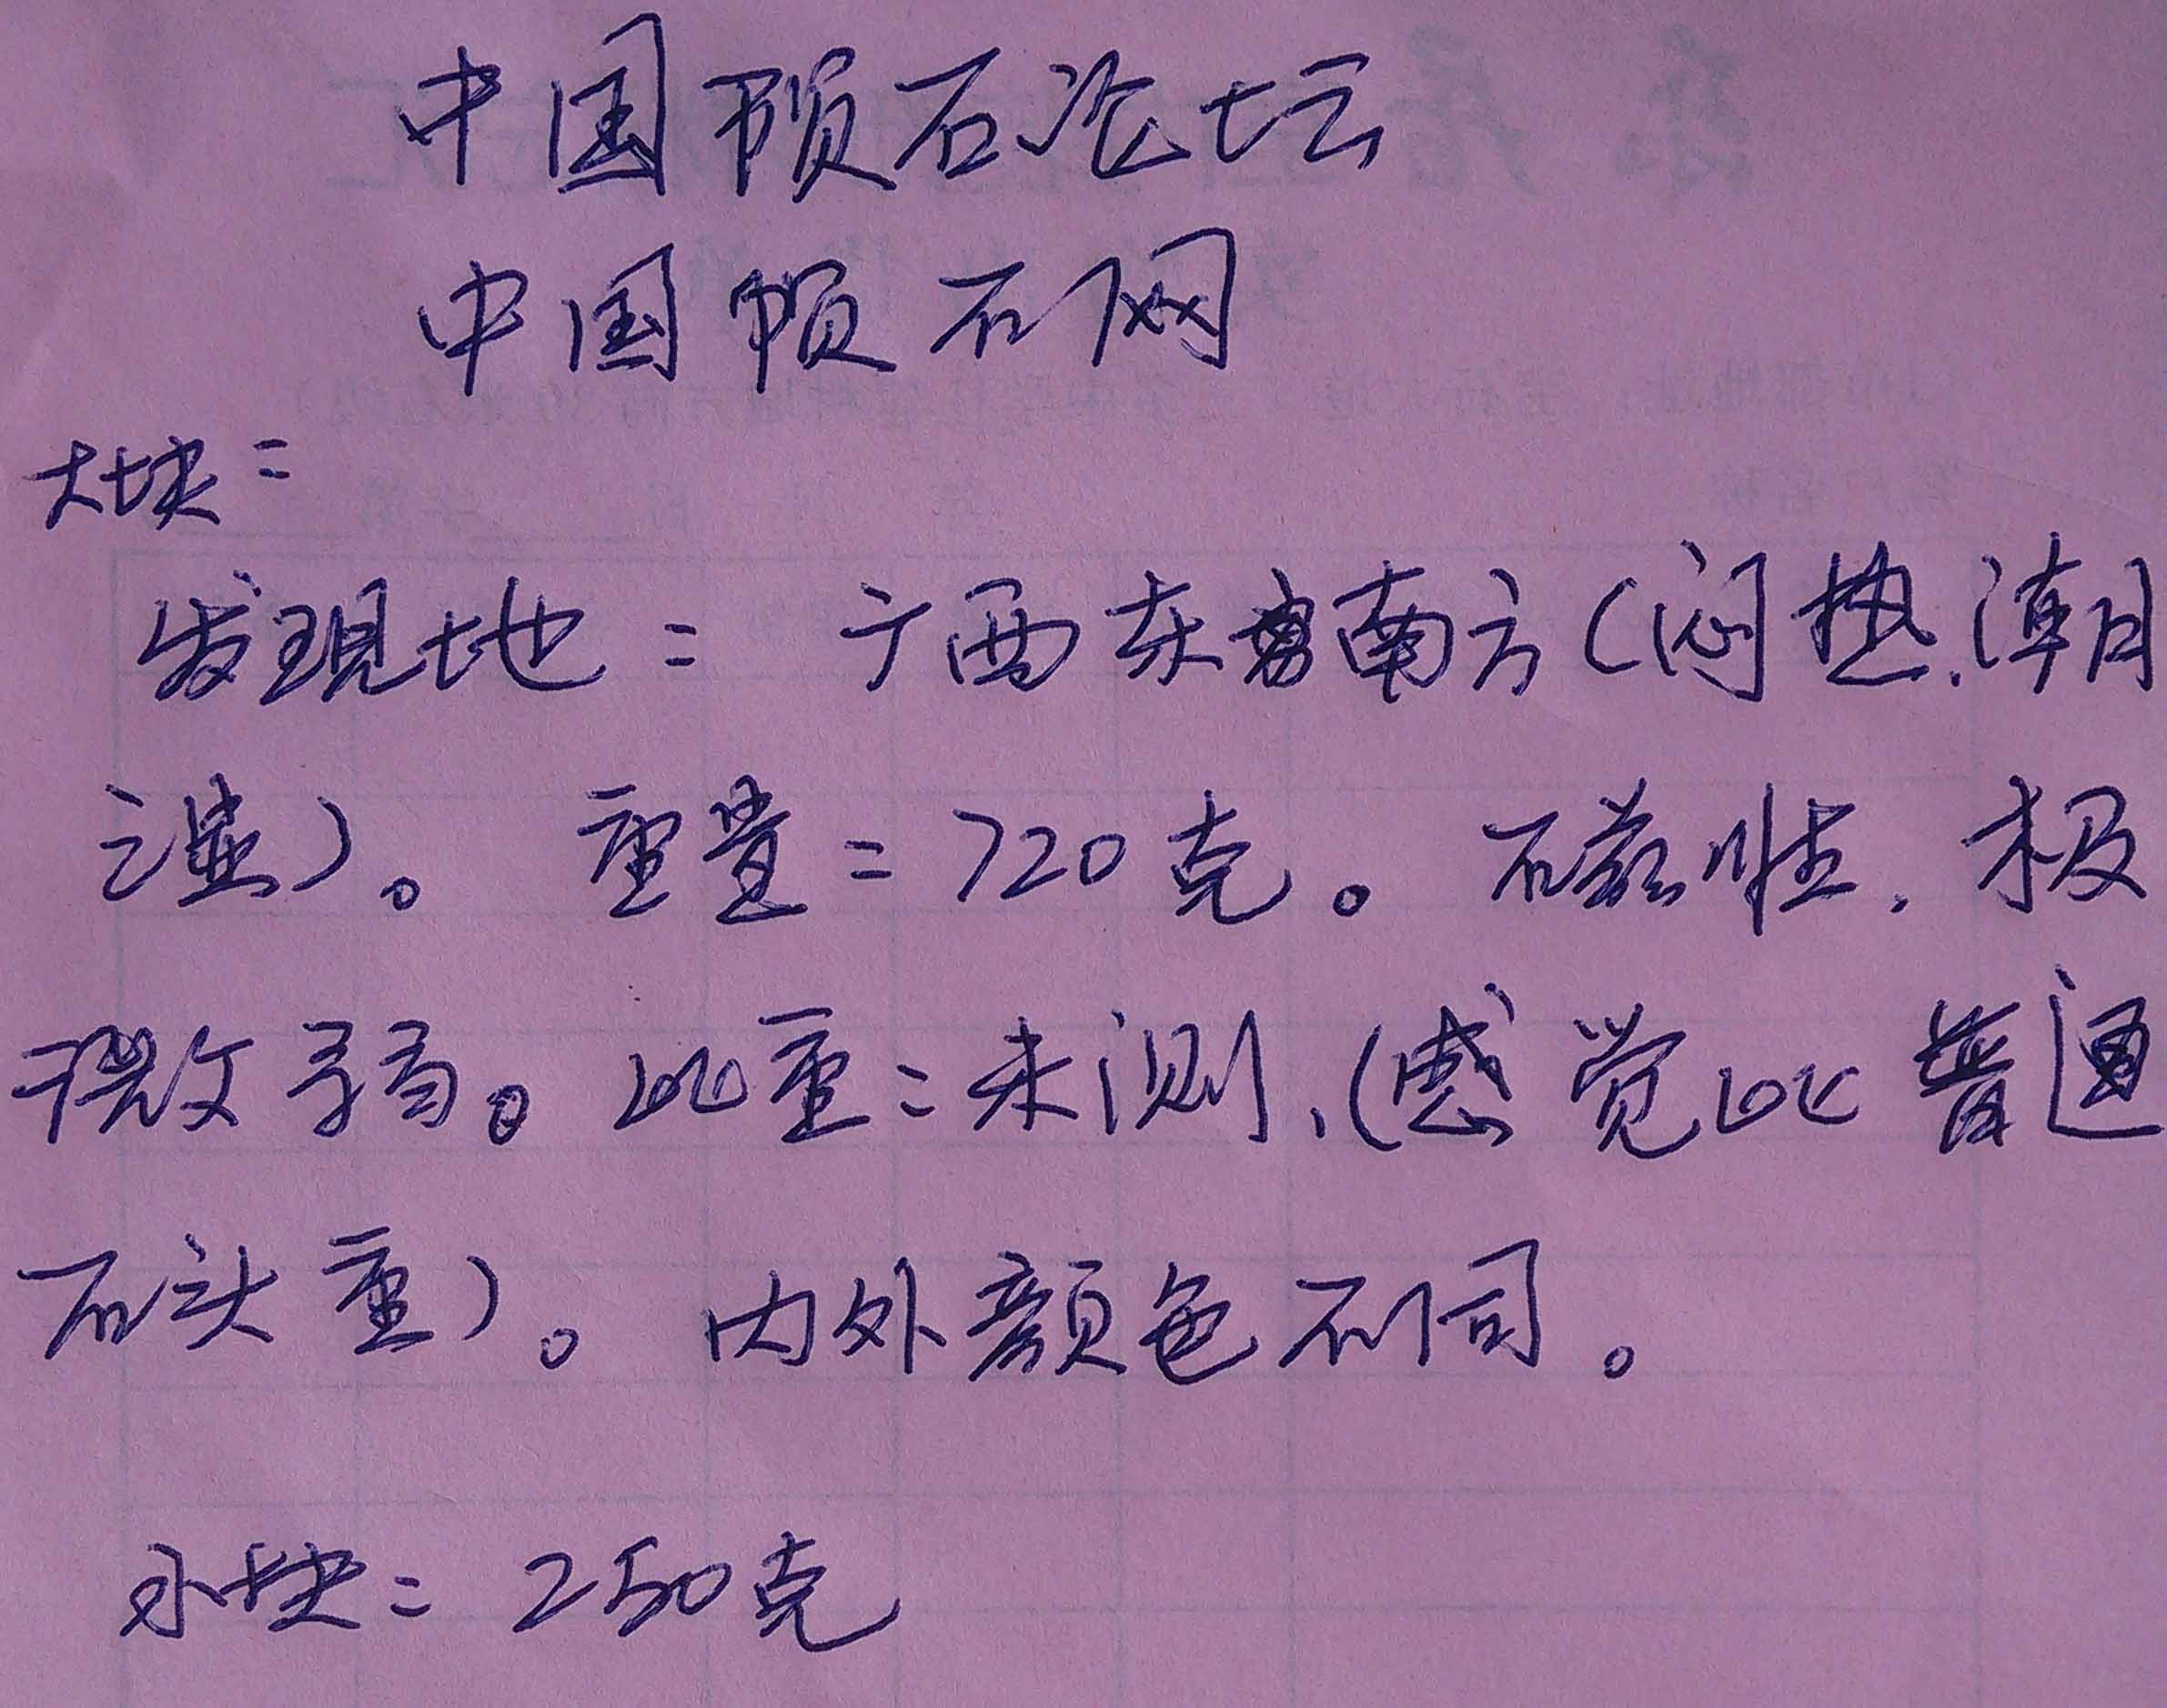 中国陨石论坛
中国陨石网
大块：
发现地： 广西东南方（闷热.潮
湿）。 重量：720克。 磁性. 极
微弱。比重：未测、（感觉比普通
石头重）。 内外颜色不同。
小块：250克